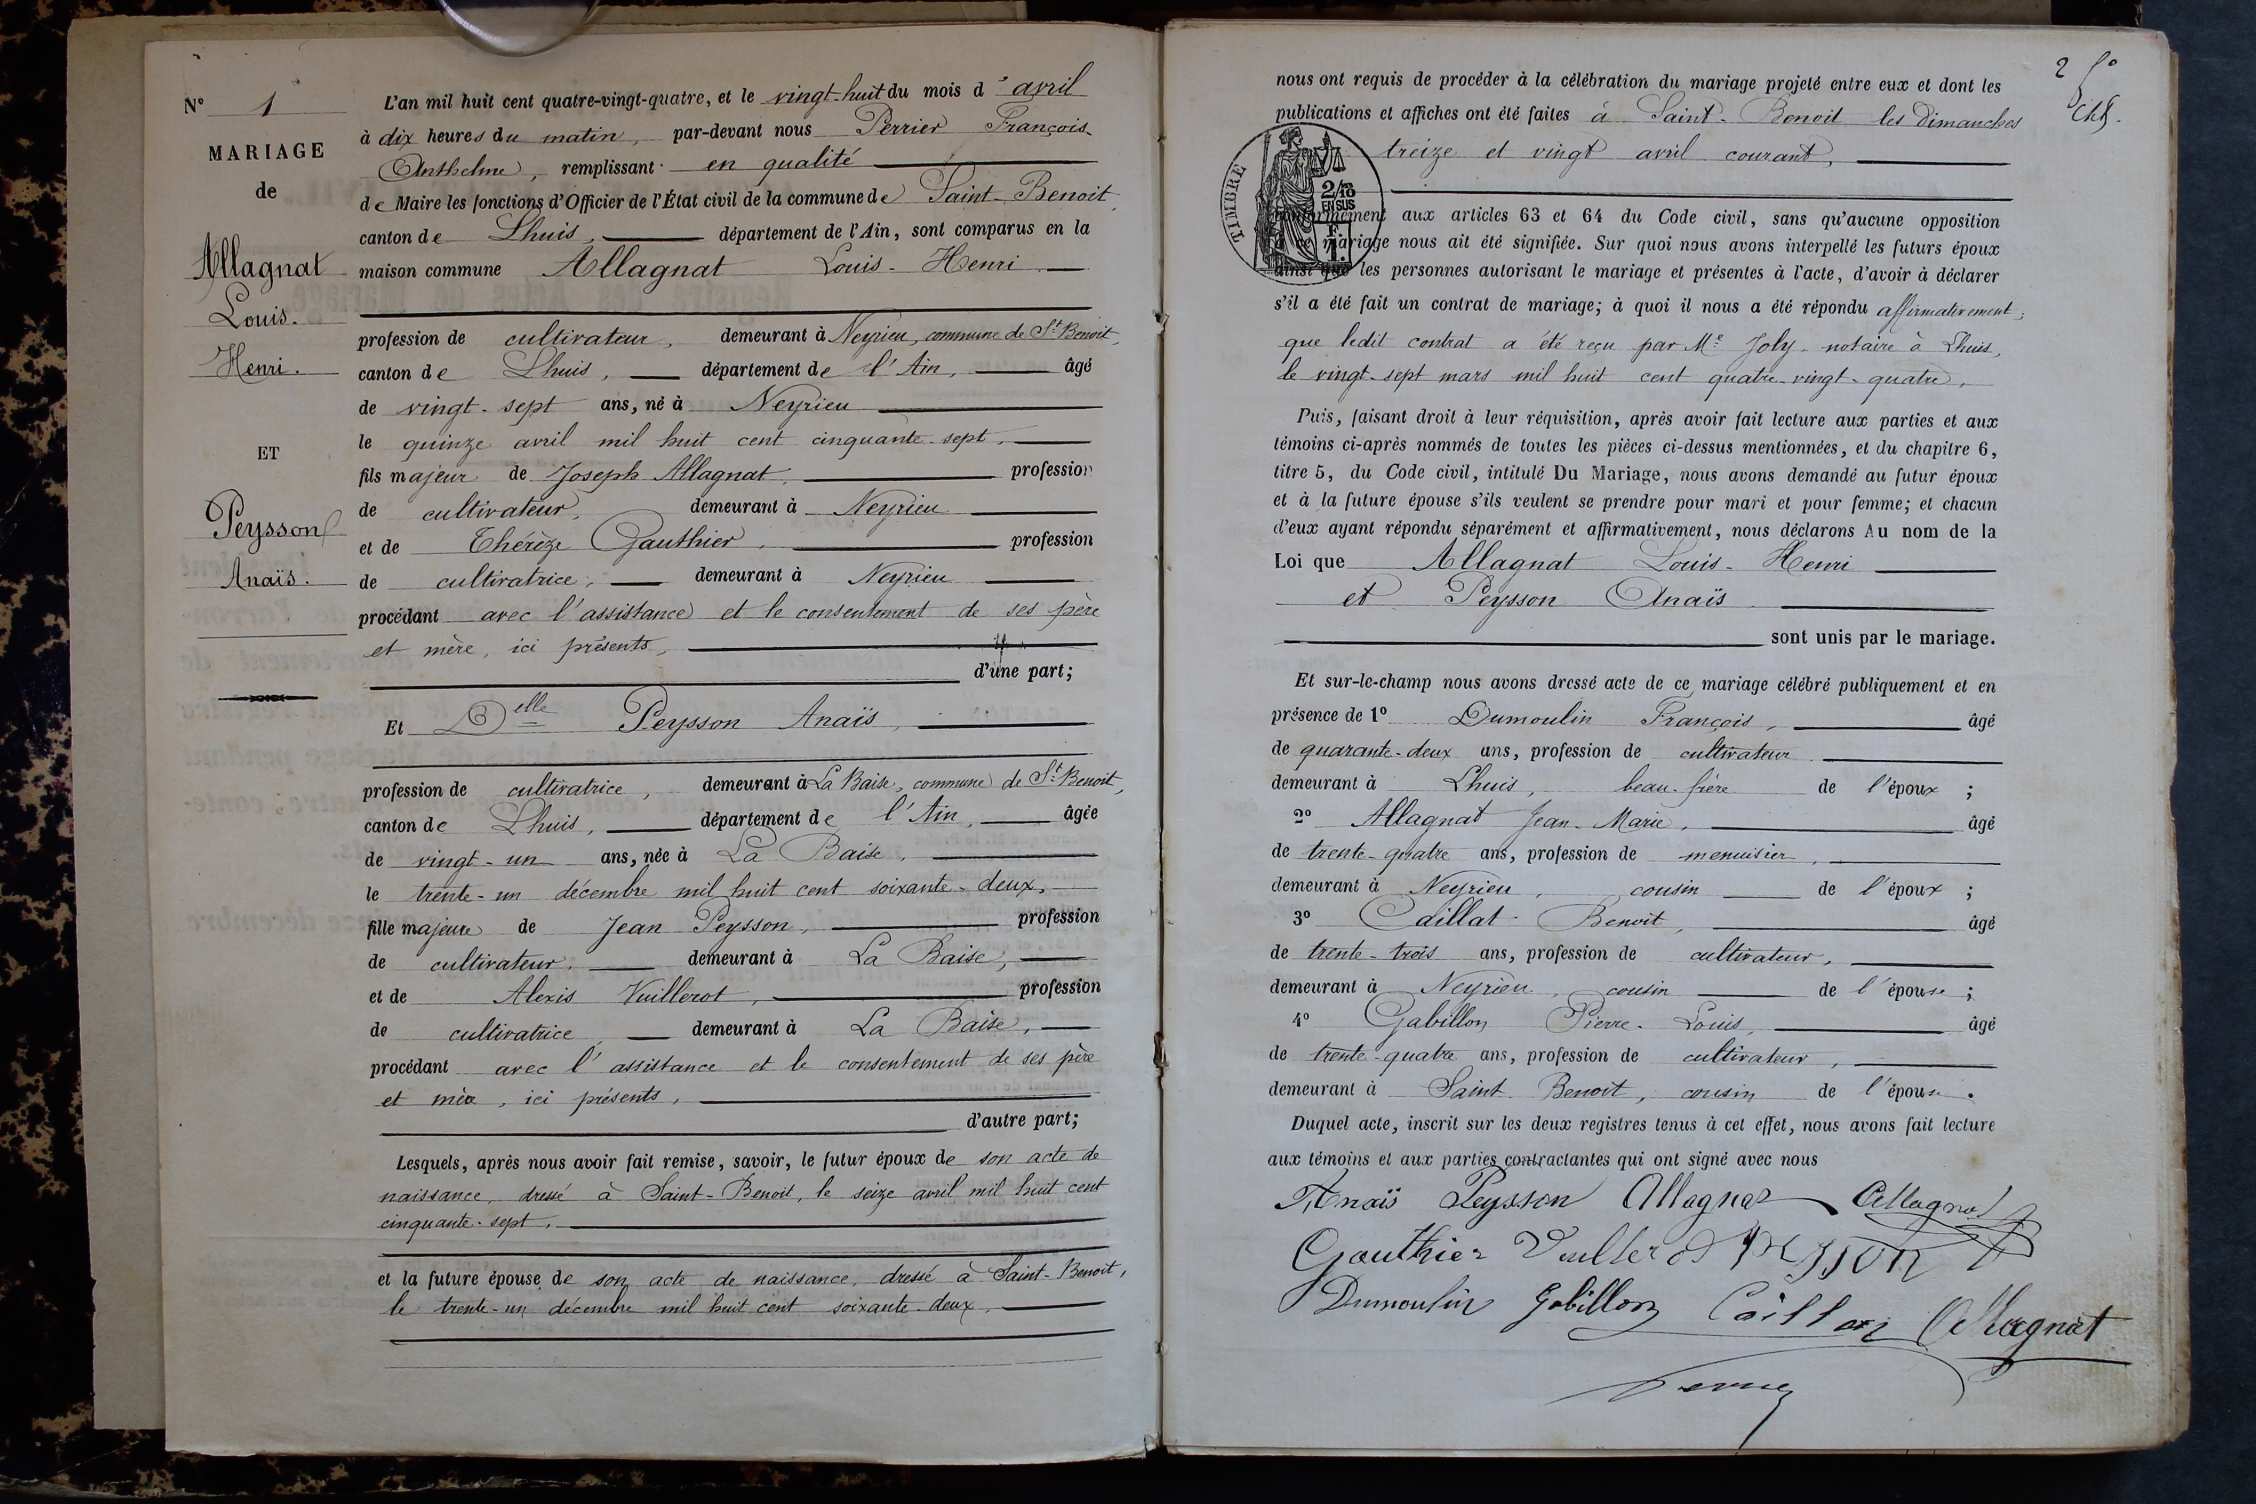 N° 1
MARIAGE
de
Allagnat
Louis.
Henri.
ET
Peysson
Anaïs.
L'an mil huit cent quatre-vingt-quatre, et le vingt-huit du mois d'avril
à dix heures du matin, par-devant nous Perrier François
Anthelme, remplissant en qualité
de Maire les fonctions d'Officier de l'État civil de la commune de Saint-Benoit,
canton de Lhuis, département de l'Ain, sont comparus en la
maison commune Allagnat Louis-Henri
profession de cultivateur, demeurant à Neyrieu, commune de St Benoit,
canton de Lhuis, département de l'Ain, âgé
de vingt-sept ans, né à Neyrieu
le quinze avril mil huit cent cinquante-sept,
fils majeur de Joseph Allagnat, profession
de cultivateur, demeurant à Neyrieu
et de Thérèze Gauthier, profession
de cultivatrice, demeurant à Neyrieu
procédant avec l'assistance et le consentement de ses père
et mère, ici présents,
d'une part;
Et Delle Peysson Anaïs,
profession de cultivatrice, demeurant à La Baise, commune de St Benoit,
canton de Lhuis, département de l'Ain, âgée
de vingt-un ans, née à La Baise,
le trente-un décembre mil huit cent soixante-deux,
fille majeure de Jean Peysson, profession
de cultivateur, demeurant à La Baise,
et de Alexis Vuillerot, profession
de cultivatrice demeurant à La Baise,
procédant avec l'assistance et le consentement de ses père
et mère, ici présents,
d'autre part;
Lesquels, après nous avoir fait remise, savoir, le futur époux de son acte de
naissance, dressé à Saint-Benoit, le seize avril mil huit cent
cinquante-sept,
et la future épouse de son acte de naissance, dressé à Saint-Benoit,
le trente-un décembre mil huit cent soixante-deux,
2
nous ont requis de procéder à la célébration du mariage projeté entre eux et dont les
publications et affiches ont été faites à Saint-Benoit les Dimanches
treize et vingt avril courant,
TIMBRE
2/10
EN SUS
F.
1.
conformément aux articles 63 et 64 du Code civil, sans qu'aucune opposition
à ce mariage nous ait été signifiée. Sur quoi nous avons interpellé les futurs époux
ainsi que les personnes autorisant le mariage et présentes à l'acte, d'avoir à déclarer
s'il a été fait un contrat de mariage; à quoi il nous a été répondu affirmativement;
que ledit contrat a été reçu par Me Joly, notaire à Lhuis,
le vingt-sept mars mil huit cent quatre-vingt-quatre,
Puis, faisant droit à leur réquisition, après avoir fait lecture aux parties et aux
témoins ci-après nommés de toutes les pièces ci-dessus mentionnées, et du chapitre 6,
titre 5, du Code civil, intitulé Du Mariage, nous avons demandé au futur époux
et à la future épouse s'ils veulent se prendre pour mari et pour femme; et chacun
d'eux ayant répondu séparément et affirmativement, nous déclarons Au nom de la
Loi que Allagnat Louis-Henri
et Peysson Anaïs
sont unis par le mariage.
Et sur-le-champ nous avons dressé acte de ce mariage célébré publiquement et en
présence de 1° Dumoulin François, âgé
de quarante-deux ans, profession de cultivateur
demeurant à Lhuis, beau-frère de l'époux;
2° Allagnat Jean-Marie, âgé
de trente-quatre ans, profession de menuisier,
demeurant à Neyrieu, cousin de l'époux;
3° Caillat Benoit, âgé
de trente-trois ans, profession de cultivateur,
demeurant à Neyrieu, cousin de l'épouse;
4° Gabillon Pierre-Louis, âgé
de trente-quatre ans, profession de cultivateur,
demeurant à Saint Benoit, cousin de l'épouse.
Duquel acte, inscrit sur les deux registres tenus à cet effet, nous avons fait lecture
aux témoins et aux parties contractantes qui ont signé avec nous
Anaïs Peysson Allagnat Allagnat
Gauthier Vuillerot Peysson
Dumoulin Gabillon Caillat Allagnat
Perrier